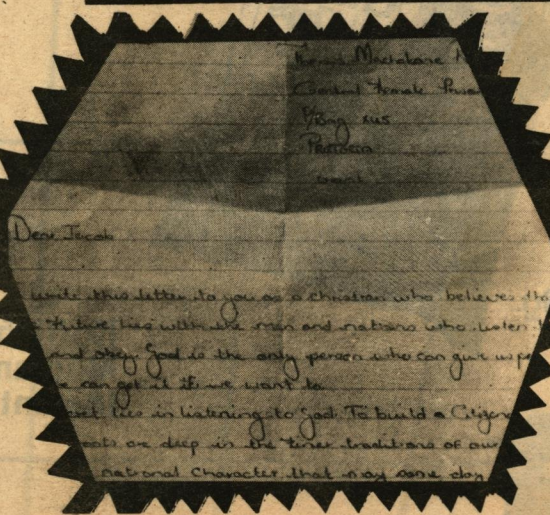 Theresa Machabane
Central Female Prison
P/Bag X45
Pretoria
0001
Dear Jacob
write this letter to you as a christian who believes tha
Future lies with the men and nations who listen t
and obey. God is the only person who can give us pe
e can get it if we want to
cret lies in listening to God. To build a Citizen
oots are deep in the finer traditions of our
national Character that may some day